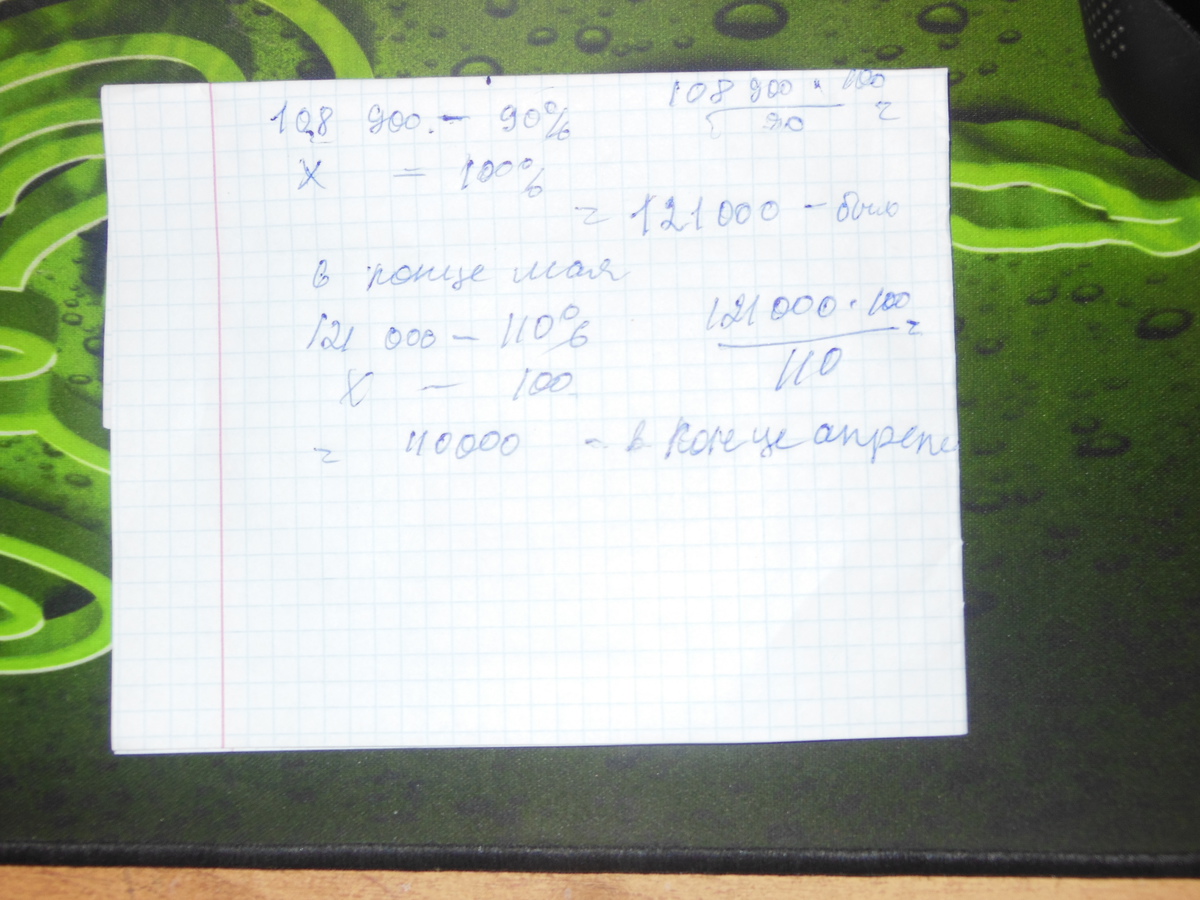 108 900 - 90%
108 900 · 100
90 =
х = 100%
= 121000 - было
в конце мая
121 000 - 110%
121 000 · 100
110 =
х - 100
= 110000 - в конце апреле